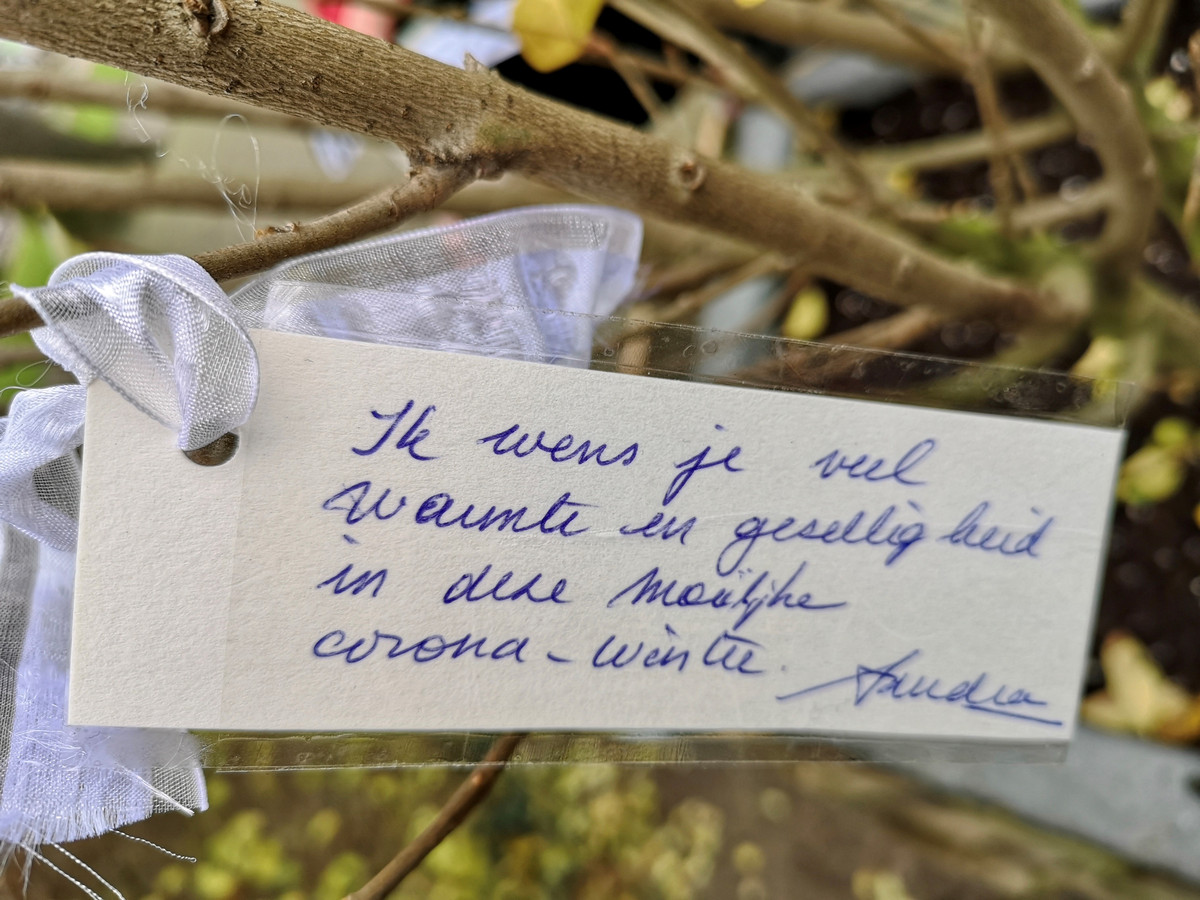 Ik wens je veel
warmte en gesellig heid
in deze moeilijke
corona-winter.
Sandra